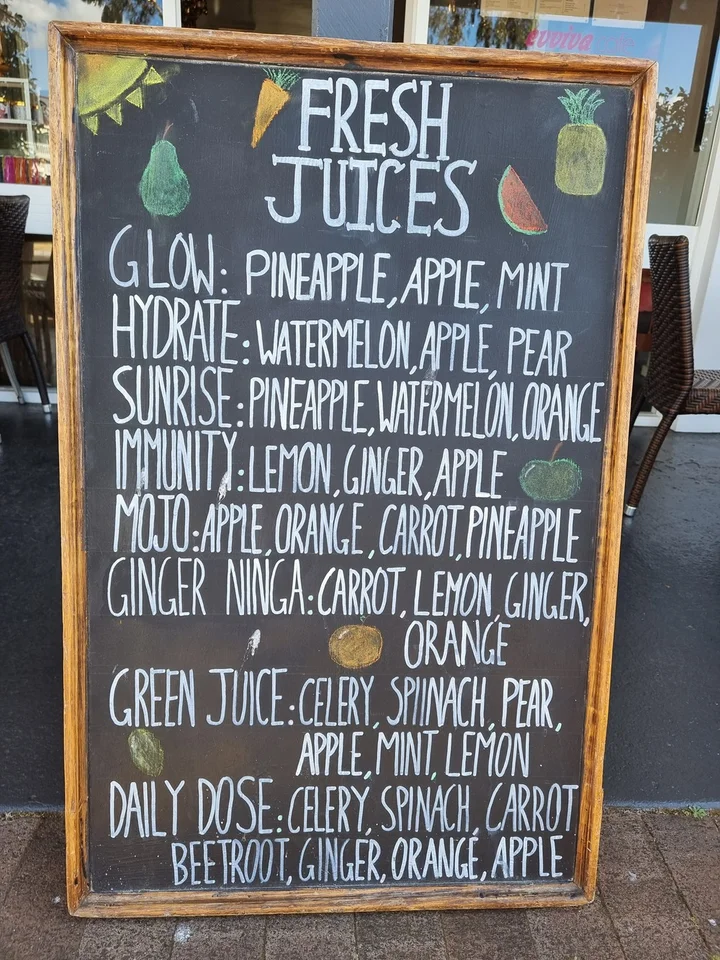 evviva
FRESH
JUICES
GLOW: PINEAPPLE, APPLE, MINT
HYDRATE: WATERMELON, APPLE, PEAR
SUNRISE: PINEAPPLE, WATERMELON, ORANGE
IMMUNITY: LEMON, GINGER, APPLE
MOJO: APPLE, ORANGE, CARROT, PINEAPPLE
GINGER NINGA: CARROT, LEMON, GINGER,
ORANGE
GREEN JUICE: CELERY, SPIINACH, PEAR,
APPLE, MINT, LEMON
DAILY DOSE: CELERY, SPINACH, CARROT
BEETROOT, GINGER, ORANGE, APPLE